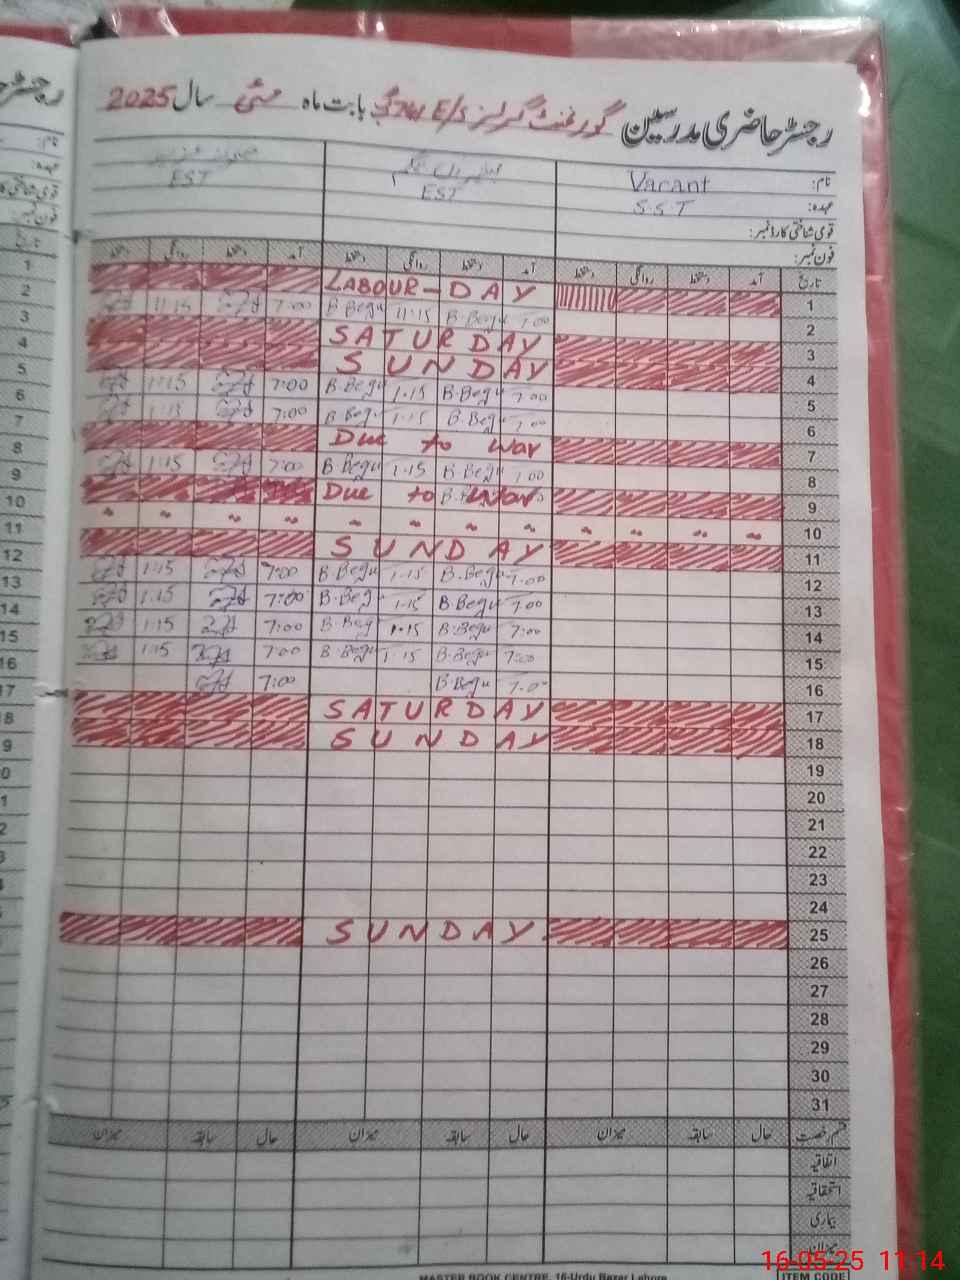 رجسٹر حاضری مدرسین گورنمنٹ گرلز E/S بابت ماہ مئی سال 2025
نام: Vacant
عہدہ: S.S.T EST EST
قومی شناختی کارڈ نمبر:
فون نمبر:
تاریخ آمد دستخط روانگی دستخط آمد دستخط روانگی دستخط آمد دستخط روانگی دستخط
1 LABOUR-DAY
2 7:00 B.Begu 11:15 B.Begu 7:00 11:15
3 SATURDAY
4 SUNDAY
5 7:00 B.Begu 1.15 B.Begu 7:00 1:15
6 7:00 B.Begu 1.15 B.Begu 7:00 1:15
7 Due to war
8 7:00 B.Begu 1.15 B.Begu 7:00 1:15
9 Due to war
10
11 SUNDAY
12 7:00 B.Begu 1.15 B.Begu 7:00 1:15
13 7:00 B.Begu 1.15 B.Begu 7:00 1:15
14 7:00 B.Begu 1.15 B.Begu 7:00 1:15
15 7:00 B.Begu 1.15 B.Begu 7:00 1:15
16 7:00 B.Begu 7:00
17 SATURDAY
18 SUNDAY
19
20
21
22
23
24
25 SUNDAY
26
27
28
29
30
31
قسم رخصت حال سابقہ میزان حال سابقہ میزان حال سابقہ میزان
اتفاقیہ
استحقاقیہ
بیماری
میزان
16-05-25 11:14
MASTER BOOK CENTRE, 16-Urdu Bazar Lahore
ITEM CODE